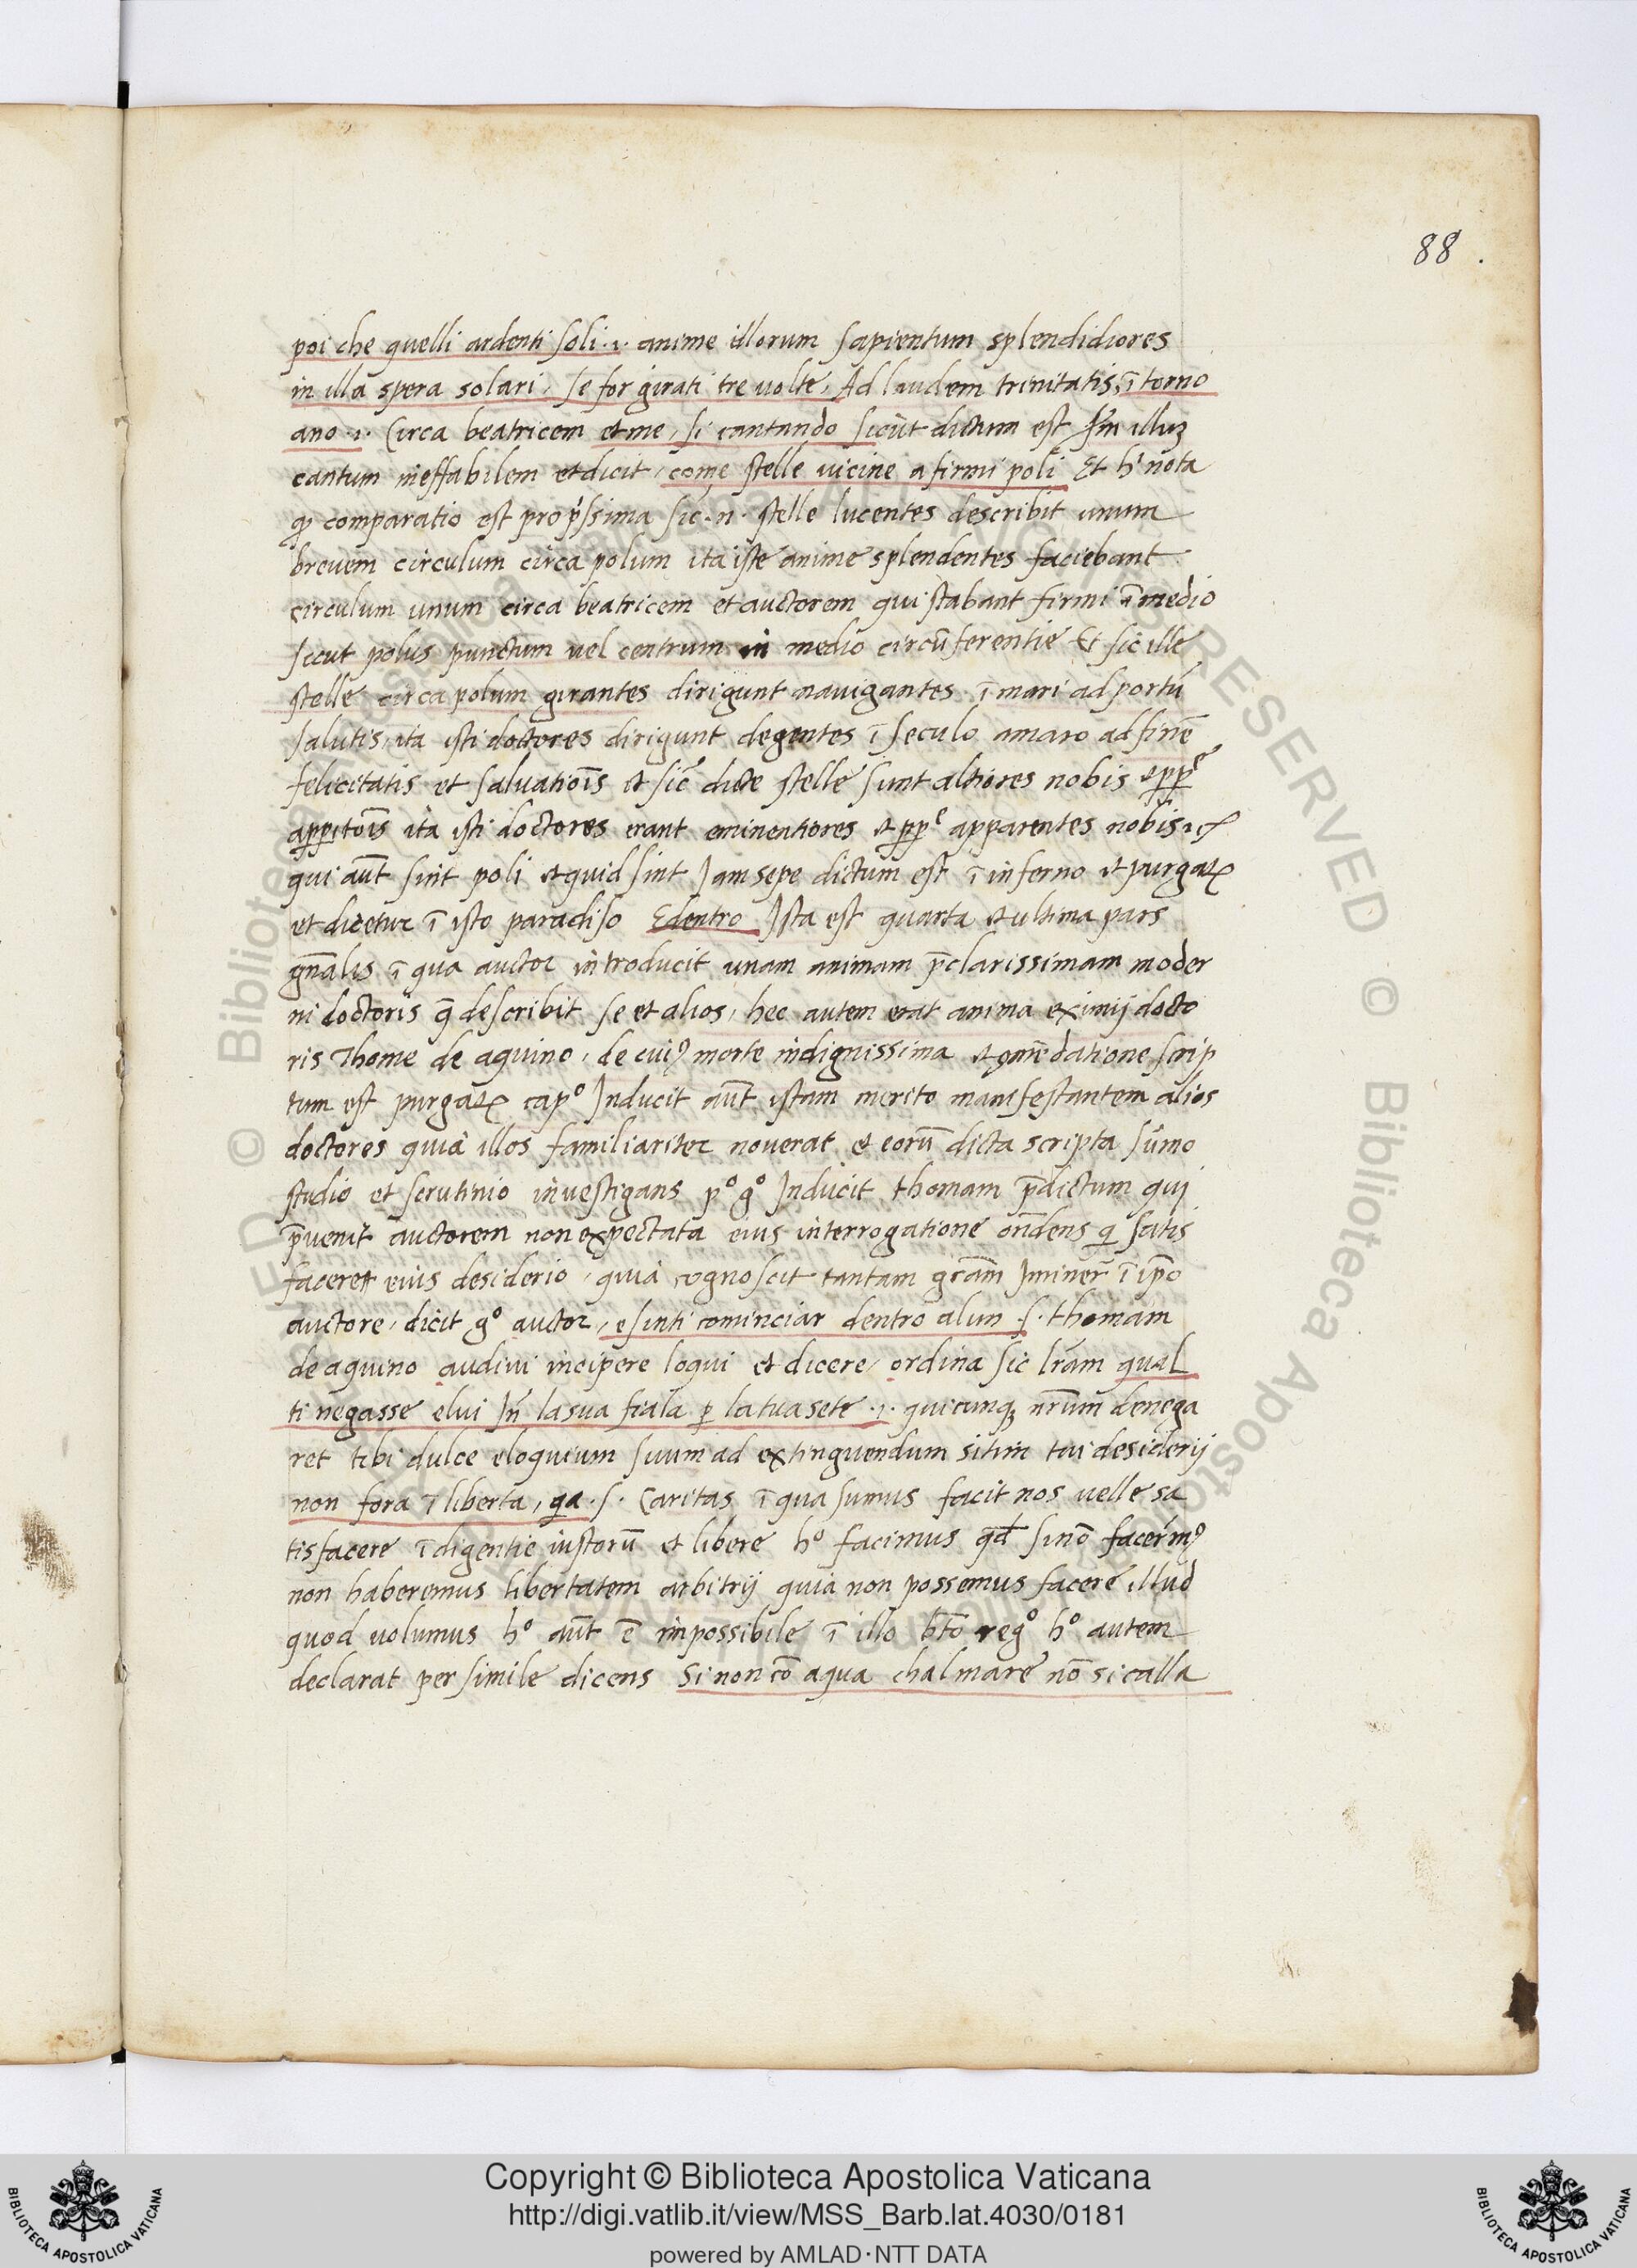 88.
poi che quelli ardenti soli .i. anime illorum sapientum splendidiores
in illa spera solari, se for girati tre volte, Ad laudem trinitatis, ītorno
ano .i. Circa beatricem et me, si cantando sicut dictum est illuz
cantum ineffabilem et dicit, come stelle vicine a firmi poli Et h' nota
comparatio est prop'ssima sic .n. stelle lucentes describit unum
brevem circulum circa polum ita iste anime splendentes faciebant
circulum unum circa beatricem et auctorem qui stabant firmi ī medio
sicut polus punctum vel centrum in medio circūferentie Et sic ille
stelle circa polum girantes dirigunt navigantes ī mari ad portū
salutis, ita isti doctores dirigunt degentes ī seculo amaro ad finē
felicitatis et salvatiōis et sic dicte stelle sunt altiores nobis et
ita isti doctores erant eminentiores et apparentes nobis
qui aūt sint poli et quid sint Jam sepe dictum est ī inferno et purgat
et dicetur ī isto paradiso Edentro Ista est quarta et ultima pars
gn̄alis ī qua auctor introducit unam animam p̄clarissimam moder
ni doctoris q̄ describit se et alios, hec autem erat anima eximij docto
ris Thome de aquino, de cui9 morte indignissima et datione scrip
tum est purgat cap° Inducit aūt istam merito manifestantem alios
doctores quia illos familiariter noverat et eorū dicta scripta sūmo
studio et scrutinio investigans p° g° Inducit thomam p̄dictum qui
p̄venit auctorem non expectata eius interrogatione on̄dens q satis
faceret eius desiderio, quia cognoscit tantam grām ī ip̄o
auctore, dicit g° auctor, esinti cominciar dentro alun .s. thomam
de aquino audivi incipere loqui et dicere, ordina sic lr̄am qual
ti negasse elvi la sua fiala p la tua sete .i. quicunq nr̄um denega
ret tibi dulce eloquium suum ad extinguendum sitim tui desiderij
non fora ī liberta, qa .s. Caritas ī qua sumus facit nos velle sa
tisfacere īdigentie iustorū et libere h° facimus qd sinō facerm9
non haberemus libertatem arbitrij quia non possemus facere illud
quod volumus h° aūt ē impossibile ī illo bt̄o reg° h° autem
declarat per simile dicens Si non cō aqua chal mare nō si calla
Copyright © Biblioteca Apostolica Vaticana
http://digi.vatlib.it/view/MSS_Barb.lat.4030/0181
powered by AMLAD·NTT DATA